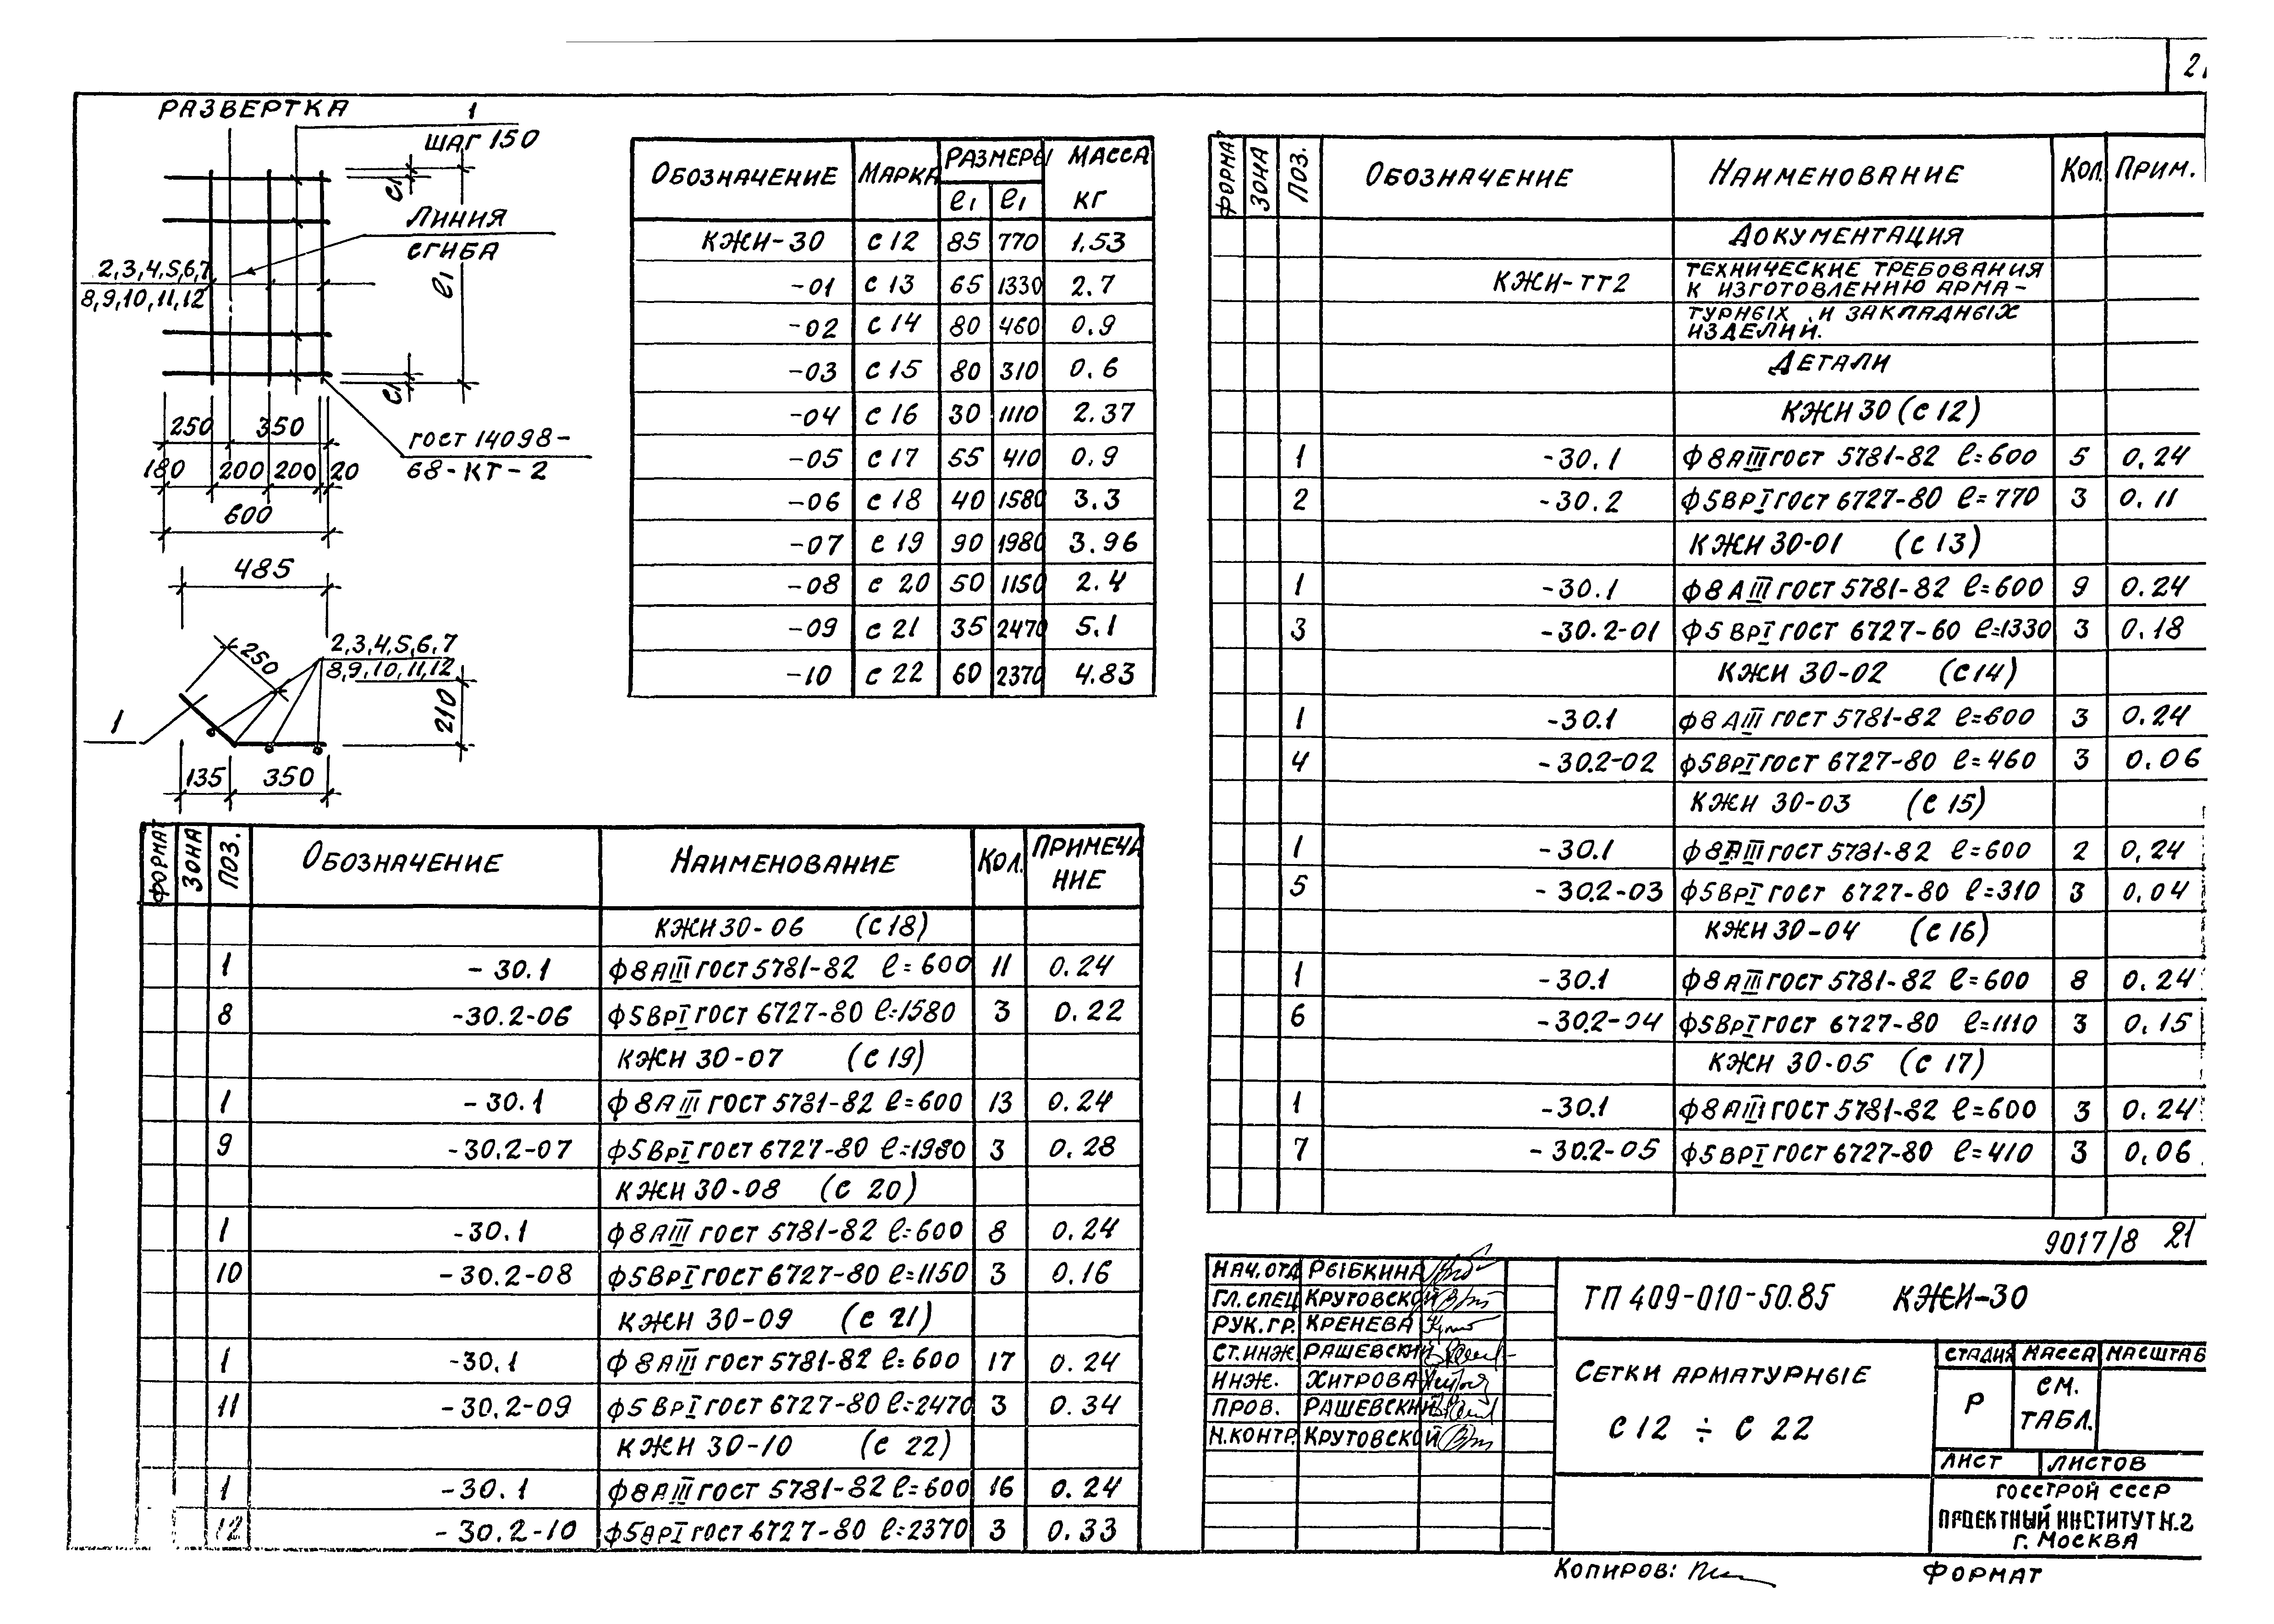 РАЗВЕРТКА
1
ШАГ 150
С1
ЛИНИЯ
СГИБА
2,3,4,5,6,7
8,9,10,11,12
ℓ1
С1
250 350
ГОСТ 14098-
68-КТ-2
180 200 200 20
600
485
250
2,3,4,5,6,7
8,9,10,11,12
1
210
135 350
ОБОЗНАЧЕНИЕ МАРКА РАЗМЕРЫ МАССА
ℓ1 ℓ1 КГ
КЖИ-30 С 12 85 770 1.53
-01 С 13 65 1330 2.7
-02 С 14 80 460 0.9
-03 С 15 80 310 0.6
-04 С 16 30 1110 2.37
-05 С 17 55 410 0.9
-06 С 18 40 1580 3.3
-07 С 19 90 1980 3.96
-08 С 20 50 1150 2.4
-09 С 21 35 2470 5.1
-10 С 22 60 2370 4.83
ФОРМАТ ЗОНА ПОЗ. ОБОЗНАЧЕНИЕ НАИМЕНОВАНИЕ КОЛ. ПРИМЕЧА
НИЕ
КЖИ 30-06 (С 18)
1 -30.1 Ф8АIII ГОСТ 5781-82 ℓ=600 11 0.24
8 -30.2-06 Ф5ВРI ГОСТ 6727-80 ℓ=1580 3 0.22
КЖИ 30-07 (С 19)
1 -30.1 Ф8АIII ГОСТ 5781-82 ℓ=600 13 0.24
9 -30.2-07 Ф5ВРI ГОСТ 6727-80 ℓ=1980 3 0.28
КЖИ 30-08 (С 20)
1 -30.1 Ф8АIII ГОСТ 5781-82 ℓ=600 8 0.24
10 -30.2-08 Ф5ВРI ГОСТ 6727-80 ℓ=1150 3 0.16
КЖИ 30-09 (С 21)
1 -30.1 Ф8АIII ГОСТ 5781-82 ℓ=600 17 0.24
11 -30.2-09 Ф5ВРI ГОСТ 6727-80 ℓ=2470 3 0.34
КЖИ 30-10 (С 22)
1 -30.1 Ф8АIII ГОСТ 5781-82 ℓ=600 16 0.24
12 -30.2-10 Ф5ВРI ГОСТ 6727-80 ℓ=2370 3 0.33
ФОРМАТ ЗОНА ПОЗ. ОБОЗНАЧЕНИЕ НАИМЕНОВАНИЕ КОЛ. ПРИМ.
ДОКУМЕНТАЦИЯ
КЖИ-ТТ2 ТЕХНИЧЕСКИЕ ТРЕБОВАНИЯ
К ИЗГОТОВЛЕНИЮ АРМА-
ТУРНЫХ И ЗАКЛАДНЫХ
ИЗДЕЛИЙ.
ДЕТАЛИ
КЖИ 30 (С 12)
1 -30.1 Ф8АIII ГОСТ 5781-82 ℓ=600 5 0.24
2 -30.2 Ф5ВРI ГОСТ 6727-80 ℓ=770 3 0.11
КЖИ 30-01 (С 13)
1 -30.1 Ф8АIII ГОСТ 5781-82 ℓ=600 9 0.24
3 -30.2-01 Ф5ВРI ГОСТ 6727-60 ℓ=1330 3 0.18
КЖИ 30-02 (С 14)
1 -30.1 Ф8АIII ГОСТ 5781-82 ℓ=600 3 0.24
4 -30.2-02 Ф5ВРI ГОСТ 6727-80 ℓ=460 3 0.06
КЖИ 30-03 (С 15)
1 -30.1 Ф8АIII ГОСТ 5781-82 ℓ=600 2 0,24
5 -30.2-03 Ф5ВРI ГОСТ 6727-80 ℓ=310 3 0,04
КЖИ 30-04 (С 16)
1 -30.1 Ф8АIII ГОСТ 5781-82 ℓ=600 8 0.24
6 -30.2-04 Ф5ВРI ГОСТ 6727-80 ℓ=1110 3 0.15
КЖИ 30-05 (С 17)
1 -30.1 Ф8АIII ГОСТ 5781-82 ℓ=600 3 0.24
7 -30.2-05 Ф5ВРI ГОСТ 6727-80 ℓ=410 3 0,06
9017/8 21
НАЧ.ОТД РЫБКИНА
ГЛ.СПЕЦ КРУТОВСКОЙ
РУК.ГР. КРЕНЕВА
СТ.ИНЖ РАШЕВСКИЙ
ИНЖ. ХИТРОВА
ПРОВ. РАШЕВСКИЙ
Н.КОНТР. КРУТОВСКОЙ
ТП 409-010-50.85 КЖИ-30
СЕТКИ АРМАТУРНЫЕ
С 12 ÷ С 22
СТАДИЯ МАССА МАСШТАБ
Р СМ.
ТАБЛ.
ЛИСТ ЛИСТОВ
ГОССТРОЙ СССР
ПРОЕКТНЫЙ ИНСТИТУТ N.2
Г. МОСКВА
КОПИРОВ: ФОРМАТ